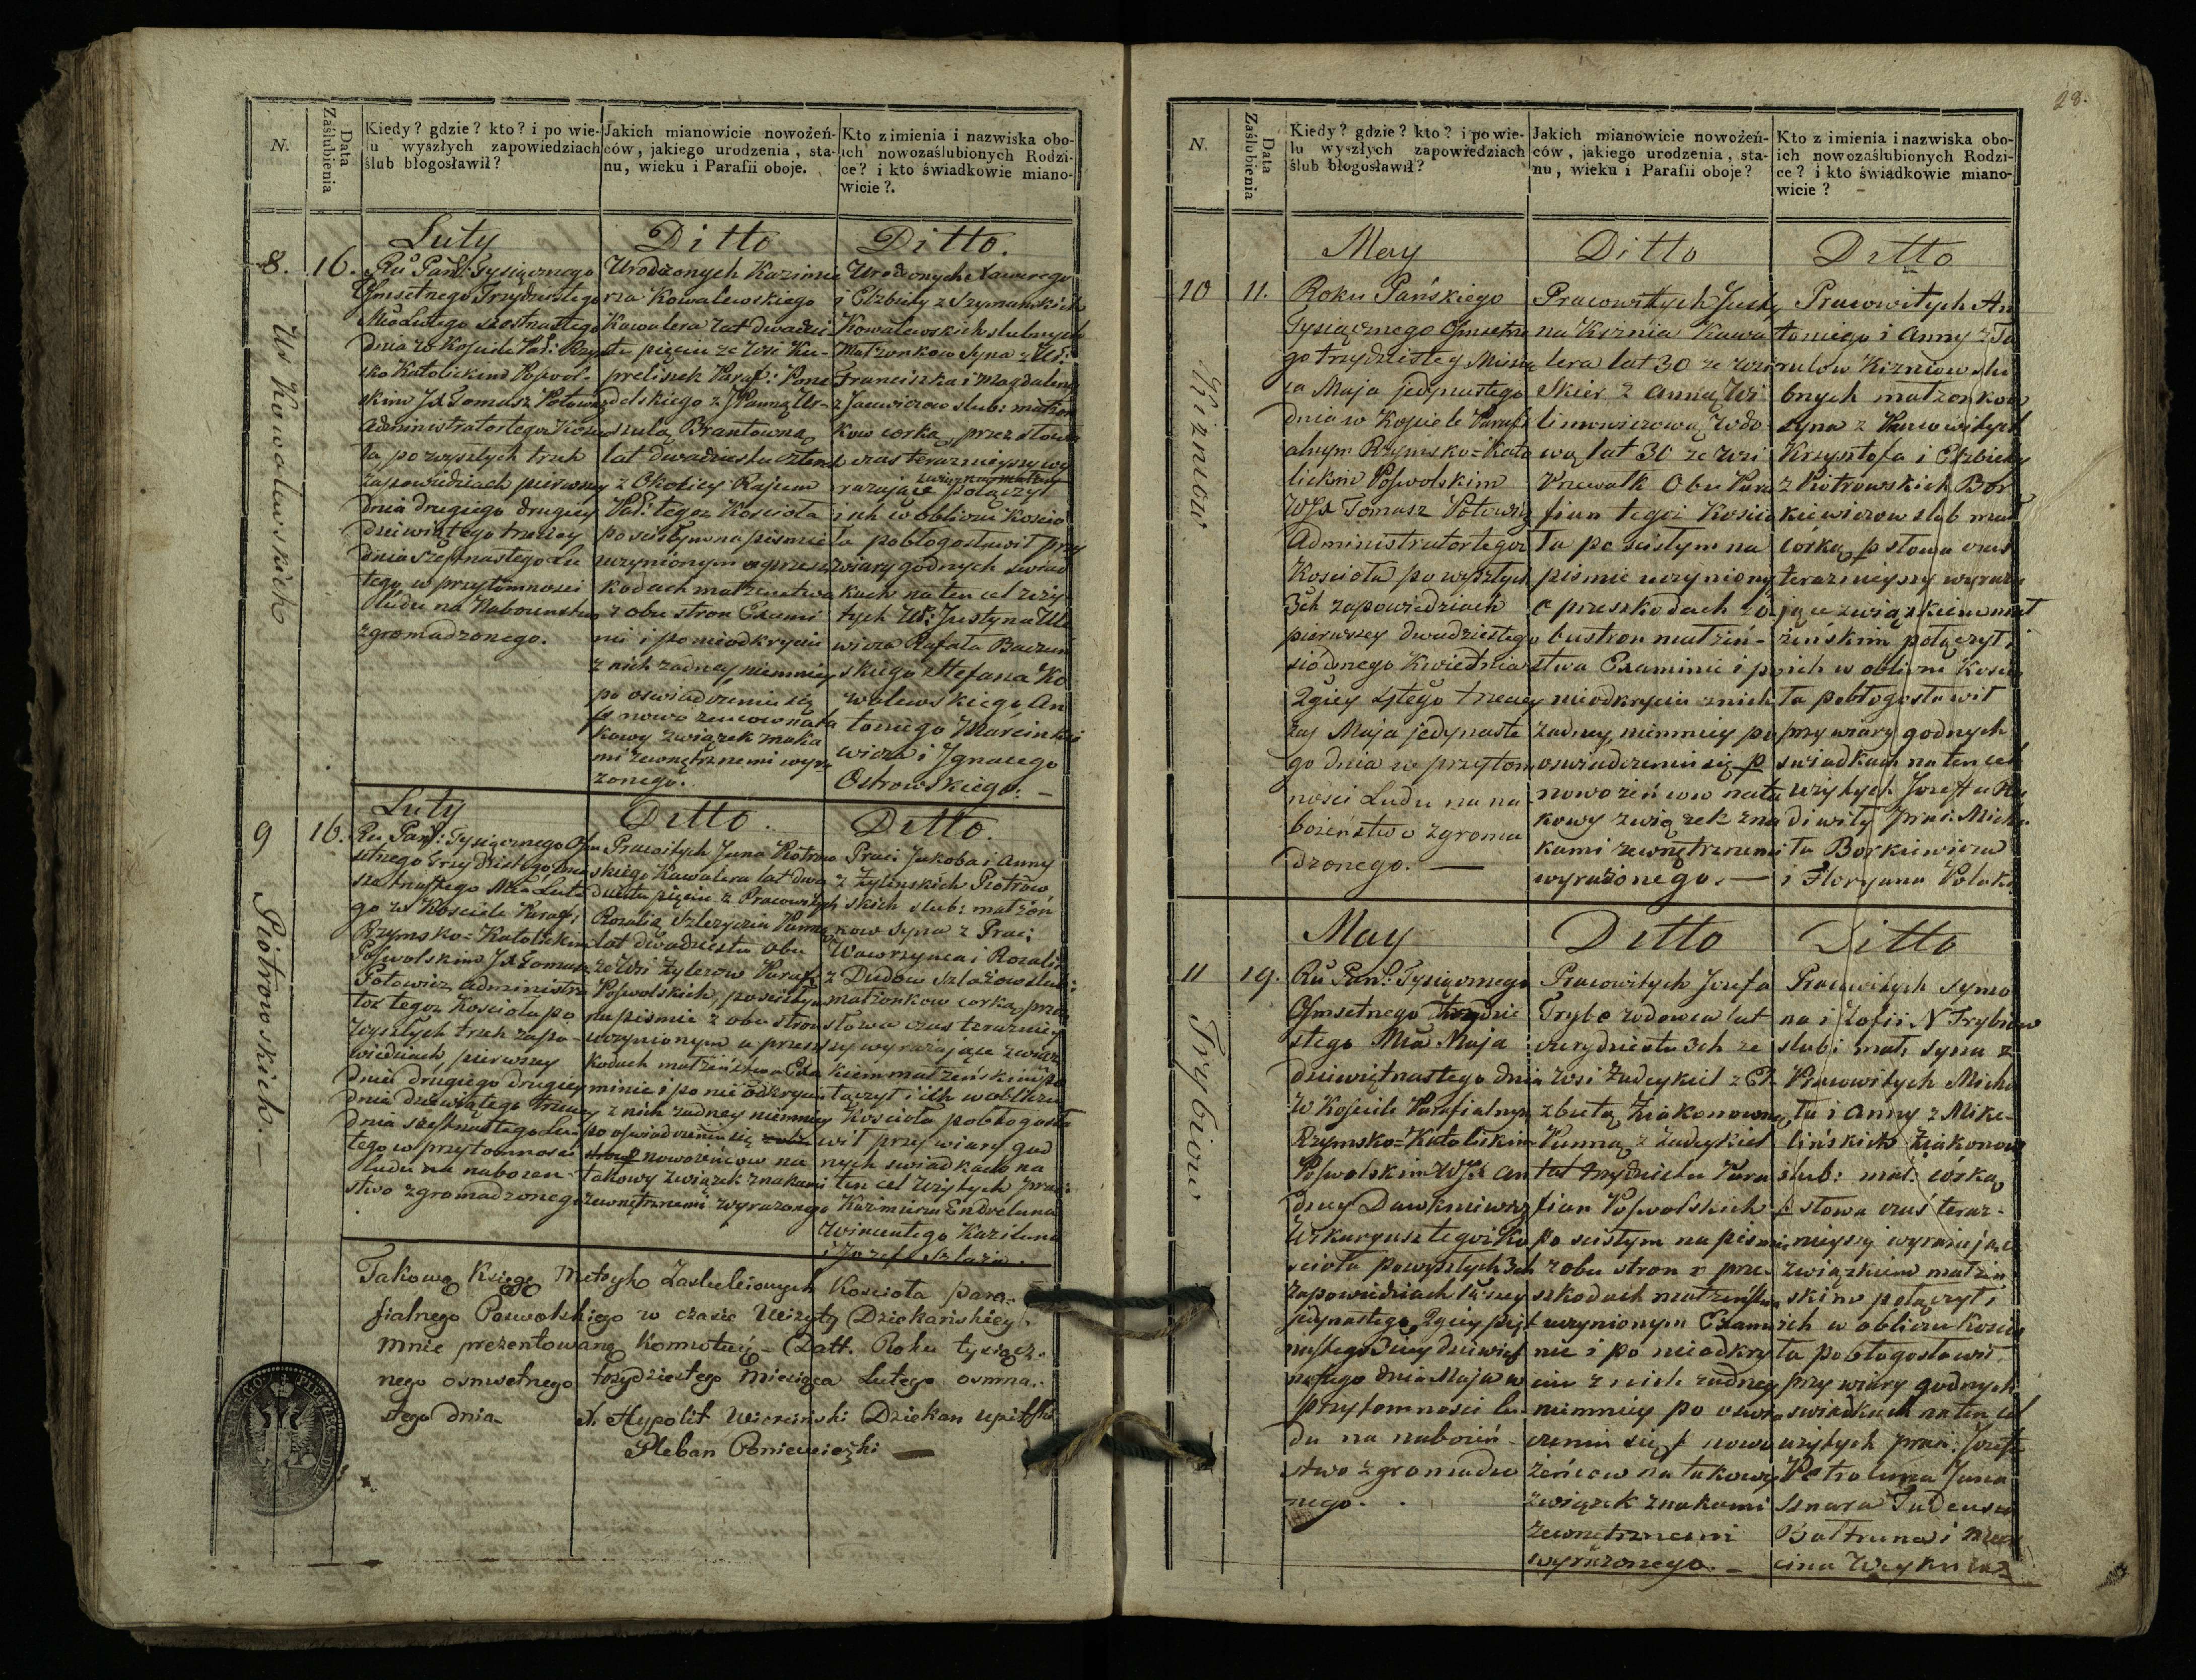 N.
Data Zaślubienia
Kiedy? gdzie? kto? i po wie-
lu wyszłych zapowiedziach
ślub błogosławił?
Jakich mianowicie nowożeń-
ców, jakiego urodzenia, sta-
nu, wieku i Parafii oboje.
Kto z imienia i nazwiska obo-
ich nowozaślubionych Rodzi-
ce? i kto świadkowie miano-
wicie?.
8.
16.
Ur Kowalewskich
Luty
Ru Pańs: Tysiącznego
Ośmsetnego Trzydziestego
Mca Lutego szostnastego
dnia w Kościele Par: Rzym
sko Katolickim Poswol-
skim JX Tomasz Potowicz
Administrator tegoż Kościo
ła po wyszłych trzech
zapowiedziach pierwszey
dnia drugiego drugiey
dziewiątego trzeciey
dnia szesnastego Lu
tego w przytomności
Ludu na Nabożeństwo
zgromadzonego.
Ditto
Urodzonych Kazimie
rza Kowalewskiego
Kawalera lat dwadzie
ścia pięciu ze Wsi Ku-
preliszek Paraf: Pone
delskiego z JPanną Ur-
szulą Brantowną
lat dwadziestu czterech
z Okolicy Rajun
Par: tegoż Kościoła
po ścisłym na piśmie
uczynionym o przesz
kodach małżeństwa
z obu stron Exami
nie i po nieodkryciu
z nich żadney niemniey
po oswiadczeniu się
nowożeńców na ta
kowy związek znaka
mi zewnętrznemi wyra
żonego.
Ditto.
Urodzonych Xawerego
i Elżbiety z Szymańskich
Kowalewskich ślubnych
Małżonków Syna z Ur:
Franciszka i Magdaleny
z Jacewiczow ślub: małżon
ków córką, przez słowa
czas teraznieyszy wy
rażające związkiem małżeń połączył
i ich w obliczu Kościo
ła pobłogosławił przy
wiary godnych świad
kach na ten cel użytych
Ur: Justyna Ule
wicza Rafała Baczań
skiego Stefana Ko
walewskiego An
toniego Marcinkie
wicza i Ignacego
Ostrowskiego. —
9
16.
Piotrowskich. —
Luty
Ru Pańs: Tysiącznego Ośm
setnego Trzydziestego szes
nastnastego Mca Lute
go w Kościele Paraf:
Rzymsko-Katolickim
Poswolskim JX Tomasz
Potowicz Administra
tor tegoż Kościoła po
wyszłych trzech zapo-
wiedziach, pierwszey
dnia drugiego drugiey
dnia dziewiątego trzeciey
dnia szesnastego Lu-
tego w przytomności
ludu na nabożeń-
stwo zgromadzonego
Ditto.
Pracowitych Jana Piotrow
skiego Kawalera lat dwa
dziestu pięciu z Pracowitą
Rozalią Szlezycia Panną
lat dwadziestu obu
ze Wsi Żylezow Paraf:
Poswolskich, po ścisłym
na piśmie z obu stron
uczynionym o przesz
kodach małżeństwa Exa
minie i po nieodkryciu
z nich żadney niemniey
po oswiadczeniu się
nowożeńców na
takowy związek znakami
zewnętrznemi wyrażonego
Ditto.
Prac: Jakoba i Anny
z Żylinskich Piotrow
skich ślub: małżon
ków Syna z Prac:
Wawrzyńca i Rozalii
z Dudow Szlażow ślub:
małżonków córką, przez
słowa czas terazniey
szy wyrażające związ
kiem małżeńskim po
łączył i ich w obliczu
Kościoła pobłogosła
wił przy wiary god
nych świadkach na
ten cel użytych prac:
Kazimierza Endrelunа
Wincentego Kaziluna
i Jozef Szlaża.
Takową Księgę Metryk Zaślubionych Kościoła para-
fialnego Poswolskiego w czasie Wizyty Dziekańskiey
mnie prezentowaną Konnotuię. Datt. Roku tysiącz-
nego osmsetnego trzydziestego Miesiąca Lutego osmna-
stego dnia X. Hypolit Dziekan Upitski
Pleban Poniewiezki —
28.
N.
Data Zaślubienia
Kiedy? gdzie? kto? i po wie-
lu wyszłych zapowiedziach
ślub błogosławił?
Jakich mianowicie nowożeń-
ców, jakiego urodzenia, sta-
nu, wieku i Parafii oboje?
Kto z imienia i nazwiska obo-
ich nowozaślubionych Rodzi-
ce? i kto świadkowie miano-
wicie?
10
11.
Kiżniow
May
Roku Pańskiego
Tysiącznego Ośmsetne
go trzydziestey Miesią
ca Maja jedynastego
dnia w Kościele Parafi
alnym Rzymsko-Kato
lickim Poswolskim
WJX Tomasz Potowicz
Administrator tegoż
Kościoła po wyszłych
3ch zapowiedziach
pierwszey dwudziestego
siódmego Kwietnia
2giey 4tego trzeciey
zaś Maja jedynaste
go dnia w przytom
ności Ludu na na
bożeństwo zgroma
dzonego. —
Ditto
Pracowitych Justy
na Kiżnia Kawa
lera lat 30 ze wsi
Skier z Anną Wi
limowiczową wdo
wą lat 30 ze Wsi
Krewalk Obu Para
fian tegoż Kościo
ła po ścisłym na
piśmie uczyniony
o przeszkodach z o-
bustron małżeń-
stwa Examinie i po
nieodkryciu z nich
żadney, niemniey po
oswiadczeniu się p
nowożeńców na ta
kowy związek zna
kami zewnętrznemi
wyrażonego. —
Ditto
Pracowitych An
toniego i Anny z Ta
rulow Kiżniow ślu
bnych małżonków
Syna z Pracowitych
Krzysztofa i Elżbiety
z Piotrowskich Bor
kiewiczow ślub małż
córką p słowa czas
teraznieyszy wyraża
jące związkiem mał
żeńskim połączył i
ich w obliczu Kościo
ła pobłogosławił
przy wiary godnych
świadkach na ten cel
użytych Jozefa
Prac: Micha
ła Borkiewicza
i Floryana Polaka
11
19.
Trybiow
May
Ru Pańs: Tysiącznego
Ośmsetnego trzydzie
stego Mca Maja
dziewiętnastego dnia
w Kościele Parafialnym
Rzymsko-Katolickim
Poswolskim WJX An
drzey Dawkniewicz
Wikaryusz tegoż Ko
ścioła po wyszłych 3ch
zapowiedziach 1szey
jedynastego 2giey pięt
nastego 3ciey dziewięt
nastego dnia Maja w
przytomności lu
du na nabożeń-
stwo zgromadzo
nego.
Ditto
Pracowitych Jozefa
Trybe wdowca lat
czterydziestu 3ch ze
Wsi Żadeykiel z El
zbietą Żiakonowną
Panną z Żadeykiel
lat trzydziestu Para
fian Poswolskich
po ścisłym na piśmie
z obu stron o prze
szkodach małżeństwa
uczynionym Exami
nie i po nieodkry
ciu z nich żadney
niemniey po oswiad
czeniu się p nowo
żeńców na takowy
związek znakami
zewnętrznemi
wyrażonego. —
Ditto
Pracowitych Symo
na i Zofii N Trybiow
ślub: mał: syna z
Pracowitych Micha
ła i Anny z Mike-
lińskich Żiakonow
ślub: mał: córką
p słowa czas teraz-
nieyszy wyrażające
związkiem małżeń
skim połączył i
ich w obliczu Kościo
ła pobłogosławił
przy wiary godnych
świadkach na ten cel
użytych prac: Jozefa
Petroluna Jana
Sznara Tadeusza
Bałtruna i Mar
cina Weykucza